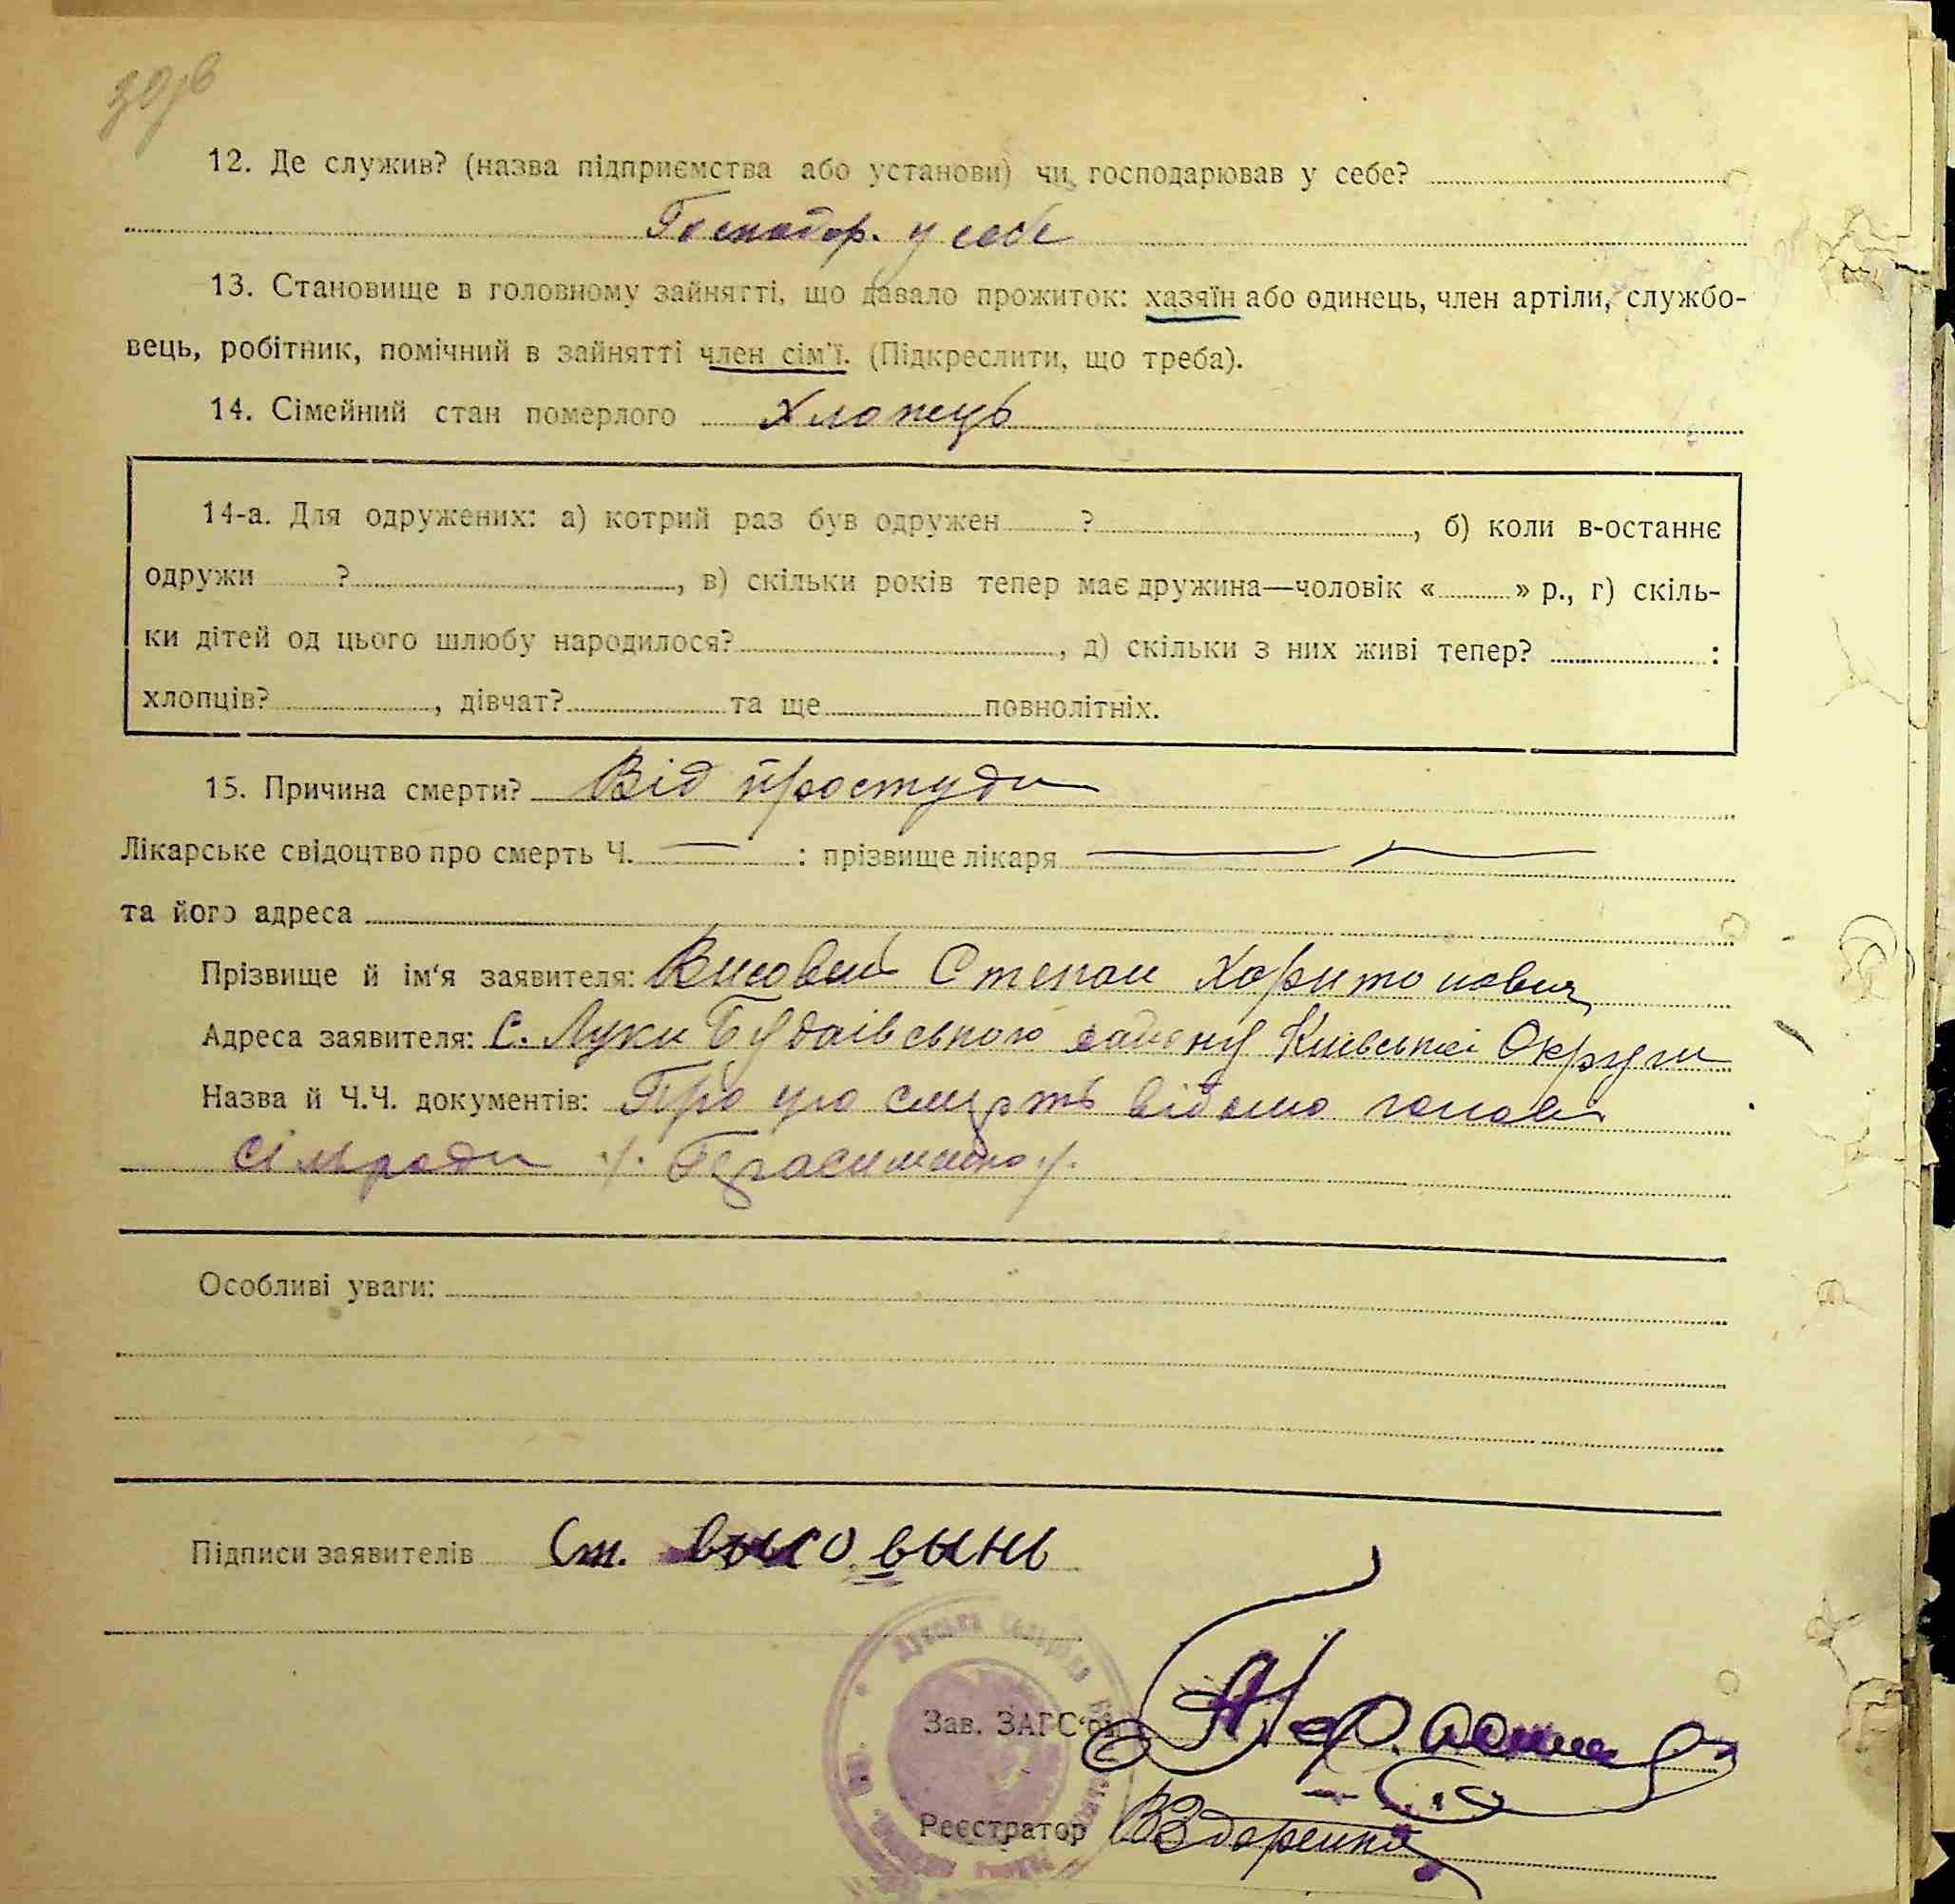 12. Де служив? (назва підприємства або установи) чи господарював у себе?
Господар. у себе
13. Становище в головному зайнятті, що давало прожиток: хазяїн або одинець, член артіли, службо-
вець, робітник, помічний в зайнятті член сім'ї. (Підкреслити, що треба).
14. Сімейний стан померлого Хлопець
14-а. Для одружених: а) котрий раз був одружен ? , б) коли в-останнє
одружи ? , в) скільки років тепер має дружина—чоловік « » р., г) скіль-
ки дітей од цього шлюбу народилося? , д) скільки з них живі тепер? :
хлопців? , дівчат? та ще повнолітніх.
15. Причина смерти? Від простуди
Лікарське свідоцтво про смерть Ч. — : прізвище лікаря — —
та його адреса
Прізвище й ім'я заявителя: Степан Харитонович
Адреса заявителя: С. Луки Будаївського району Київської Округи
Назва й Ч.Ч. документів: Про цю смерть відомо голові
сільради /. Герасименко ./.
Особливі уваги:
Підписи заявителів Ст. высовынь
Зав. ЗАГС'ом
Реєстратор ВЗдоренко